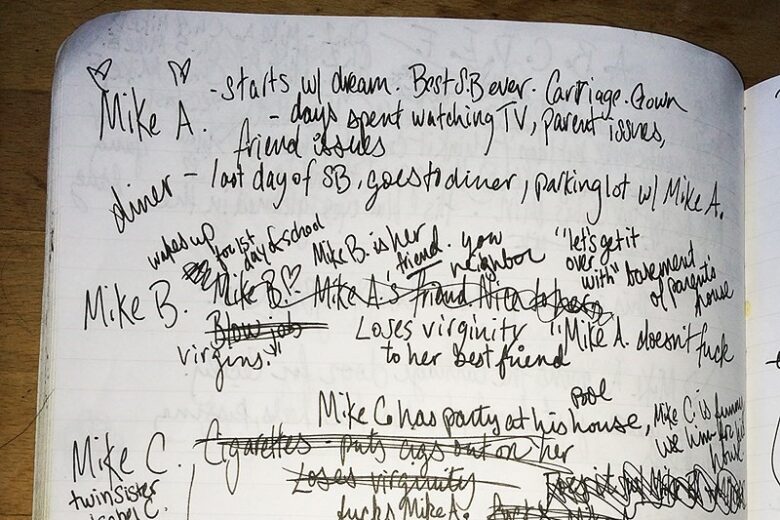 Mike A. -starts w/ dream. Best SB ever. Carriage. Gown
- days spent watching TV, parent issues,
friend issues
diner - last day of SB, goes to diner, parking lot w/ Mike A.
wakes up for 1st day of school
Mike B. Mike B. Mike B. is her friend. you neighbor "let's get it over with" basement of parent's house
Mike A's friend Nice to
Blow job
virgins. Loses virginity to her best friend "Mike A. doesn't fuck
Mike C. has party at his pool house, Mike C. is funny use him for his house
Mike C. Cigarettes - puts cigs out on her
twin sister Loses virginity
isabel C. fucks Mike A.